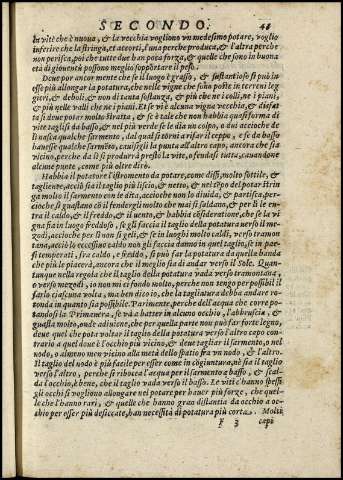 SECONDO. 43
In vite che è nuoua, & la vecchia vogliono vn medesimo potare, voglio
inferire che la stringa, et accorti, l'una perche produca, & l'altra perche
non perisca, poi che tutte due han poca forza, & quelle che sono in buona
età di giouentù possono meglio sopportare il peso.
Deue por ancor mente che se il luogo è grasso, & sustantioso si può in
esse più allongar la potatura, che nelle vigne che sono poste in terreni leg
gieri, & deboli, & non di tanta sostanza, & più che ne i colli, ne i piani,
& più nelle valli che ne i piani. Et se vi è alcuna vigna vecchia, & disfat
ta si deue potar molto stratta, & se è tale che non habbia quasi forma di
vite taglisi da basso, & nel più verde se le dia un colpo, o due accioche de
li nasca qualche sarmento, dal qual si torni a rifar il ceppo, & se da basso
hauesse qualche sarmēto, cauisegli la punta all'altro capo, ancora che sia
vicino, perche da lì si produrrà presto la vite, ofendasi tutta, cauandone
alcune piante, come più oltre dirò.
Habbia il potatore l'istromento da potare, come dissi, molto sottile, &
tagliente, acciò sia il taglio più liscio, & netto, & nel tēpo del potar strin
ga molto il sarmento con le dita, accioche non lo diuida, & partisca, per-
cioche si guastano & si fenderglisi molto che mai si saldano, & per lì le en-
tra il caldo, & il freddo, & il uento, & habbia cōsideratione, che se la vi
gna sia in luogo freddoso, se gli faccia il taglio della potatura verso il me-
zogodi, accioche per il non si geli, & se in luoghi molto caldi, verso tramon
tana, acciò lo eccessiuo caldo non gli faccia danno in quel taglio, se in pae-
si temperati, fra caldo, & freddo, si può far la potatura da quella banda
che più le piacerà, ancora che il meglio sia di andar verso il Sole. Quan-
tunque nella regola che il taglio della potatura vada verso tramontana,
o verso mezodì, io non mi ci fondo molto, perche non tengo per possibil il
farlo ciascuna volta, ma ben dico io, che la tagliatura debba andare ro-
tonda in quanto sia possibile. Parimente, perche dell'acqua che corre po-
tandosi la Primauera, se và a batter in alcuno occhio, l'abbruscia, &
guasta molto, onde adiuiene, che per quella parte non può far forte legno,
deue quel che pota voltar il taglio della potatura verso l'altro capo con-
trario a quel doue è l'occhio più vicino, & deue tagliar il sarmento, o nel
nodo, o almeno men vicino alla metà dello spatio fra vn nodo, & l'altro.
Il taglio del nodo è più facile per esser come in cogiuntura, nè sia il taglio
verso l'altro, perche se ribocca l'acqua per il sarmento a basso, & scal-
da l'occhio, & bene, che il taglio vada verso il basso. Le viti c'hanno spessi
gli occhi si vogliono allongare nel potare per hauer più forze, che quel-
le che l'hanno rari, & quelle che hanno gran distantia da occhio a oc-
chio per esser più desiccate, han necessità di potatura più corta. Molti
F 3 capi